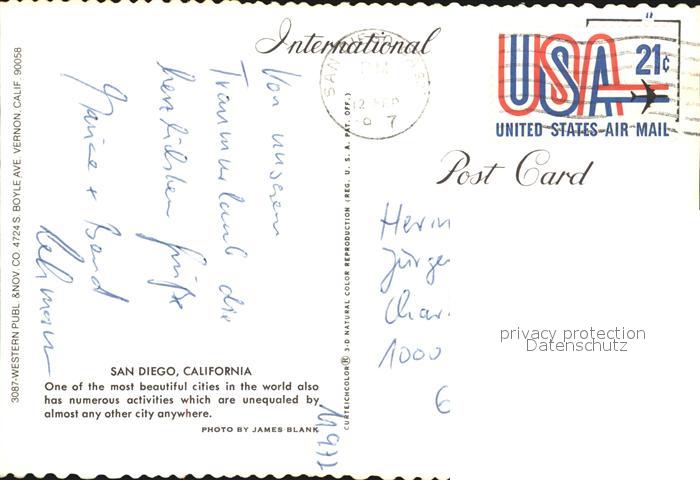 International
SAN DIEGO
PM
12 SEP
USA
21¢
UNITED STATES AIR MAIL
Post Card
Von unserem
Traumurlaub die
herzlichsten Grüße
+ Bernd
Lehmann
Herrn
Jürge
Char
1000
6
privacy protection
Datenschutz
3087-WESTERN PUBL. & NOV. CO. 4724 S. BOYLE AVE. VERNON, CALIF. 90058
CURTEICHCOLOR® 3-D NATURAL COLOR REPRODUCTION (REG. U. S. A. PAT. OFF.)
SAN DIEGO, CALIFORNIA
One of the most beautiful cities in the world also
has numerous activities which are unequaled by
almost any other city anywhere.
PHOTO BY JAMES BLANK